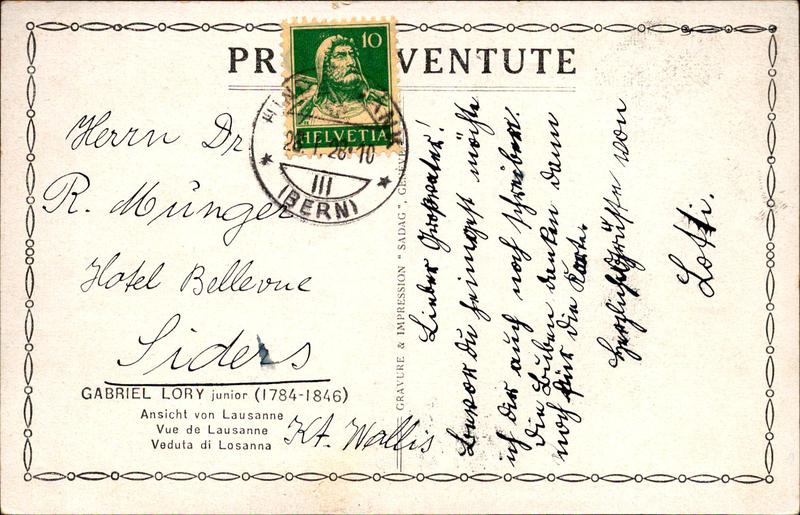 PRO JUVENTUTE
10
HELVETIA
III
(BERN)
Herrn Dr
R. Münger
Hotel Bellevue
Siders
Kt. Wallis
GABRIEL LORY junior (1784-1846)
Ansicht von Lausanne
Vue de Lausanne
Veduta di Losanna
GRAVURE & IMPRESSION "SADAG", GENÈVE
Lieber Großvater!
Bevor du heimgest möchte
ich dir auch noch schreiben.
Die Buben danken dann
noch für die Karte.
Herzliche Grüsse von
Lotti.